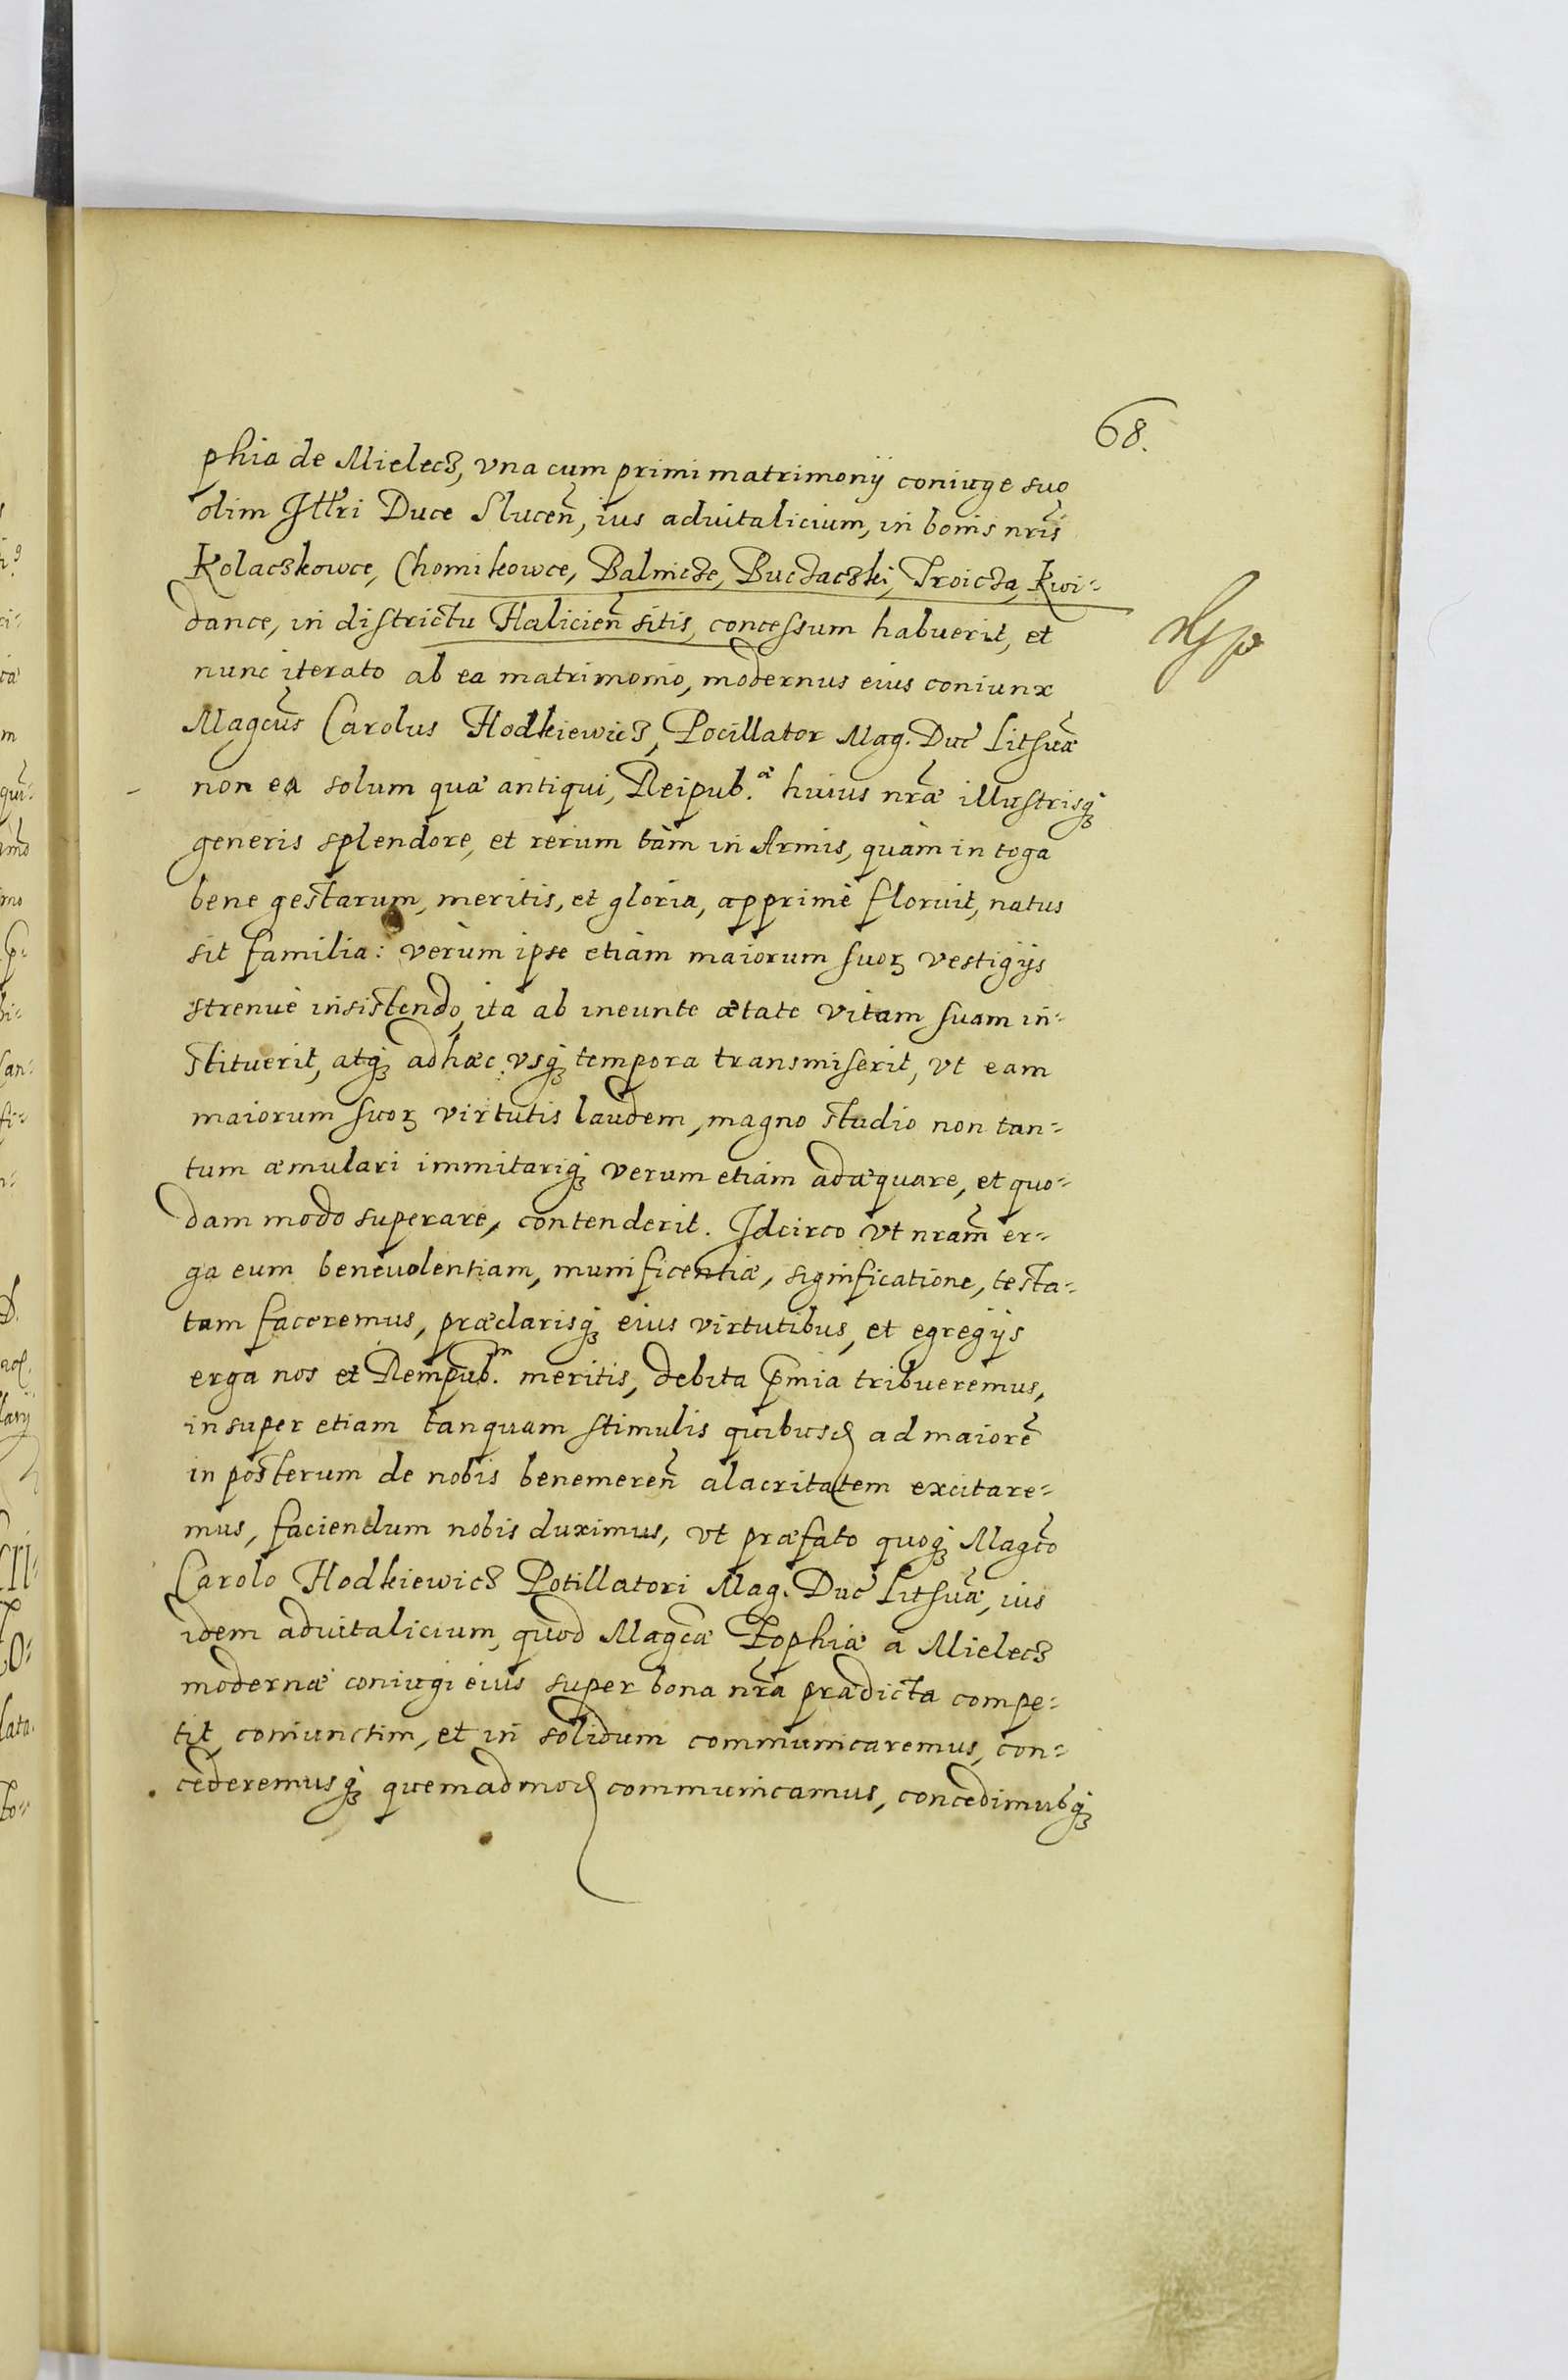 68.
phia de Mielecz, vna cum primi matrimonij coniuge suo
olim Illri Duce Slucen̄, ius aduitalicium, in bonis nr̄is
Kolaczkowce, Chomikowce, Balnicze, Buczaczki, Troicza, Kwi-
dance, in districtu Halicien̄ sitis, concessum habuerit, et
nunc iterato ab ea matrimonio, modernus eius coniunx
Magcūs Carolus Hodkiewicz, Pocillator Mag. Duc̄ Litħuæ
non ea solum quæ antiqui, Reipub.æ huius nr̄æ illustrisq́
generis splendore, et rerum tàm in Armis, quàm in toga
bene gestarum, meritis, et gloria, apprimè floruit, natus
sit familia: verùm ipse etiàm maiorum suoꝝ vestigijs
strenuè insistendo, ita ab ineunte ætate vitam suam in-
stituerit, atq́ ad hæc vsq́ tempora transmiserit, vt eam
maiorum suoꝝ virtutis laudem, magno studio non tan-
tum æmulari immitariq́ verum etiàm adæquare, et quo-
dam modo superare, contenderit. Idcirco vt nrām er-
ga eum beneuolentiam, munificentiæ, significatione, testa-
tam faceremus, præclarisq́ eius virtutibus, et egregijs
erga nos et Rempub.m meritis, debita p̄mia tribueremus,
insuper etiam tanquam stimulis quibusd̄ ad maiorē
in posterum de nobis benemeren̄ alacritatem excitare-
mus, faciendum nobis duximus, vt præfato quoq́ Magc̄o
Carolo Hodkiewicz Potillatori Mag. Duc̄ Litħuæ, ius
idem aduitalicium, quod Magc̄æ Zophiæ à Mielecz
modernæ coniugi eius super bona nr̄a prædicta compe-
tit, coniunctim, et in solidum communicaremus, con-
cederemusq́ quemadmod̄ communicamus, concedimusq́